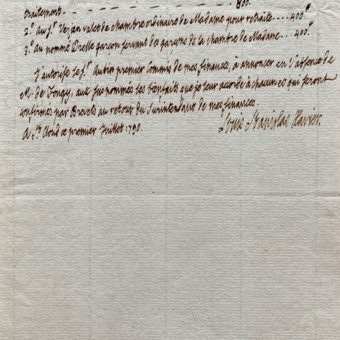 traitement 800.
2.° au S.r Verjan valet de chambre ordinaire de Madame pour retraite .... 400.#
3.° au nommé Drelle garçon servant des garçons de la chambre de Madame .. 400.#
J'autorise le S.r Aubier premier commis de mes finances, à annoncer en l'absence
M. de , aux susnommés les bienfaits que je leur accorde à chacun et qui seront
confirmés par Brevets au retour du Surintendant de mes finances.
A ce premier Juillet 1790.
Louis Stanislas Xavier